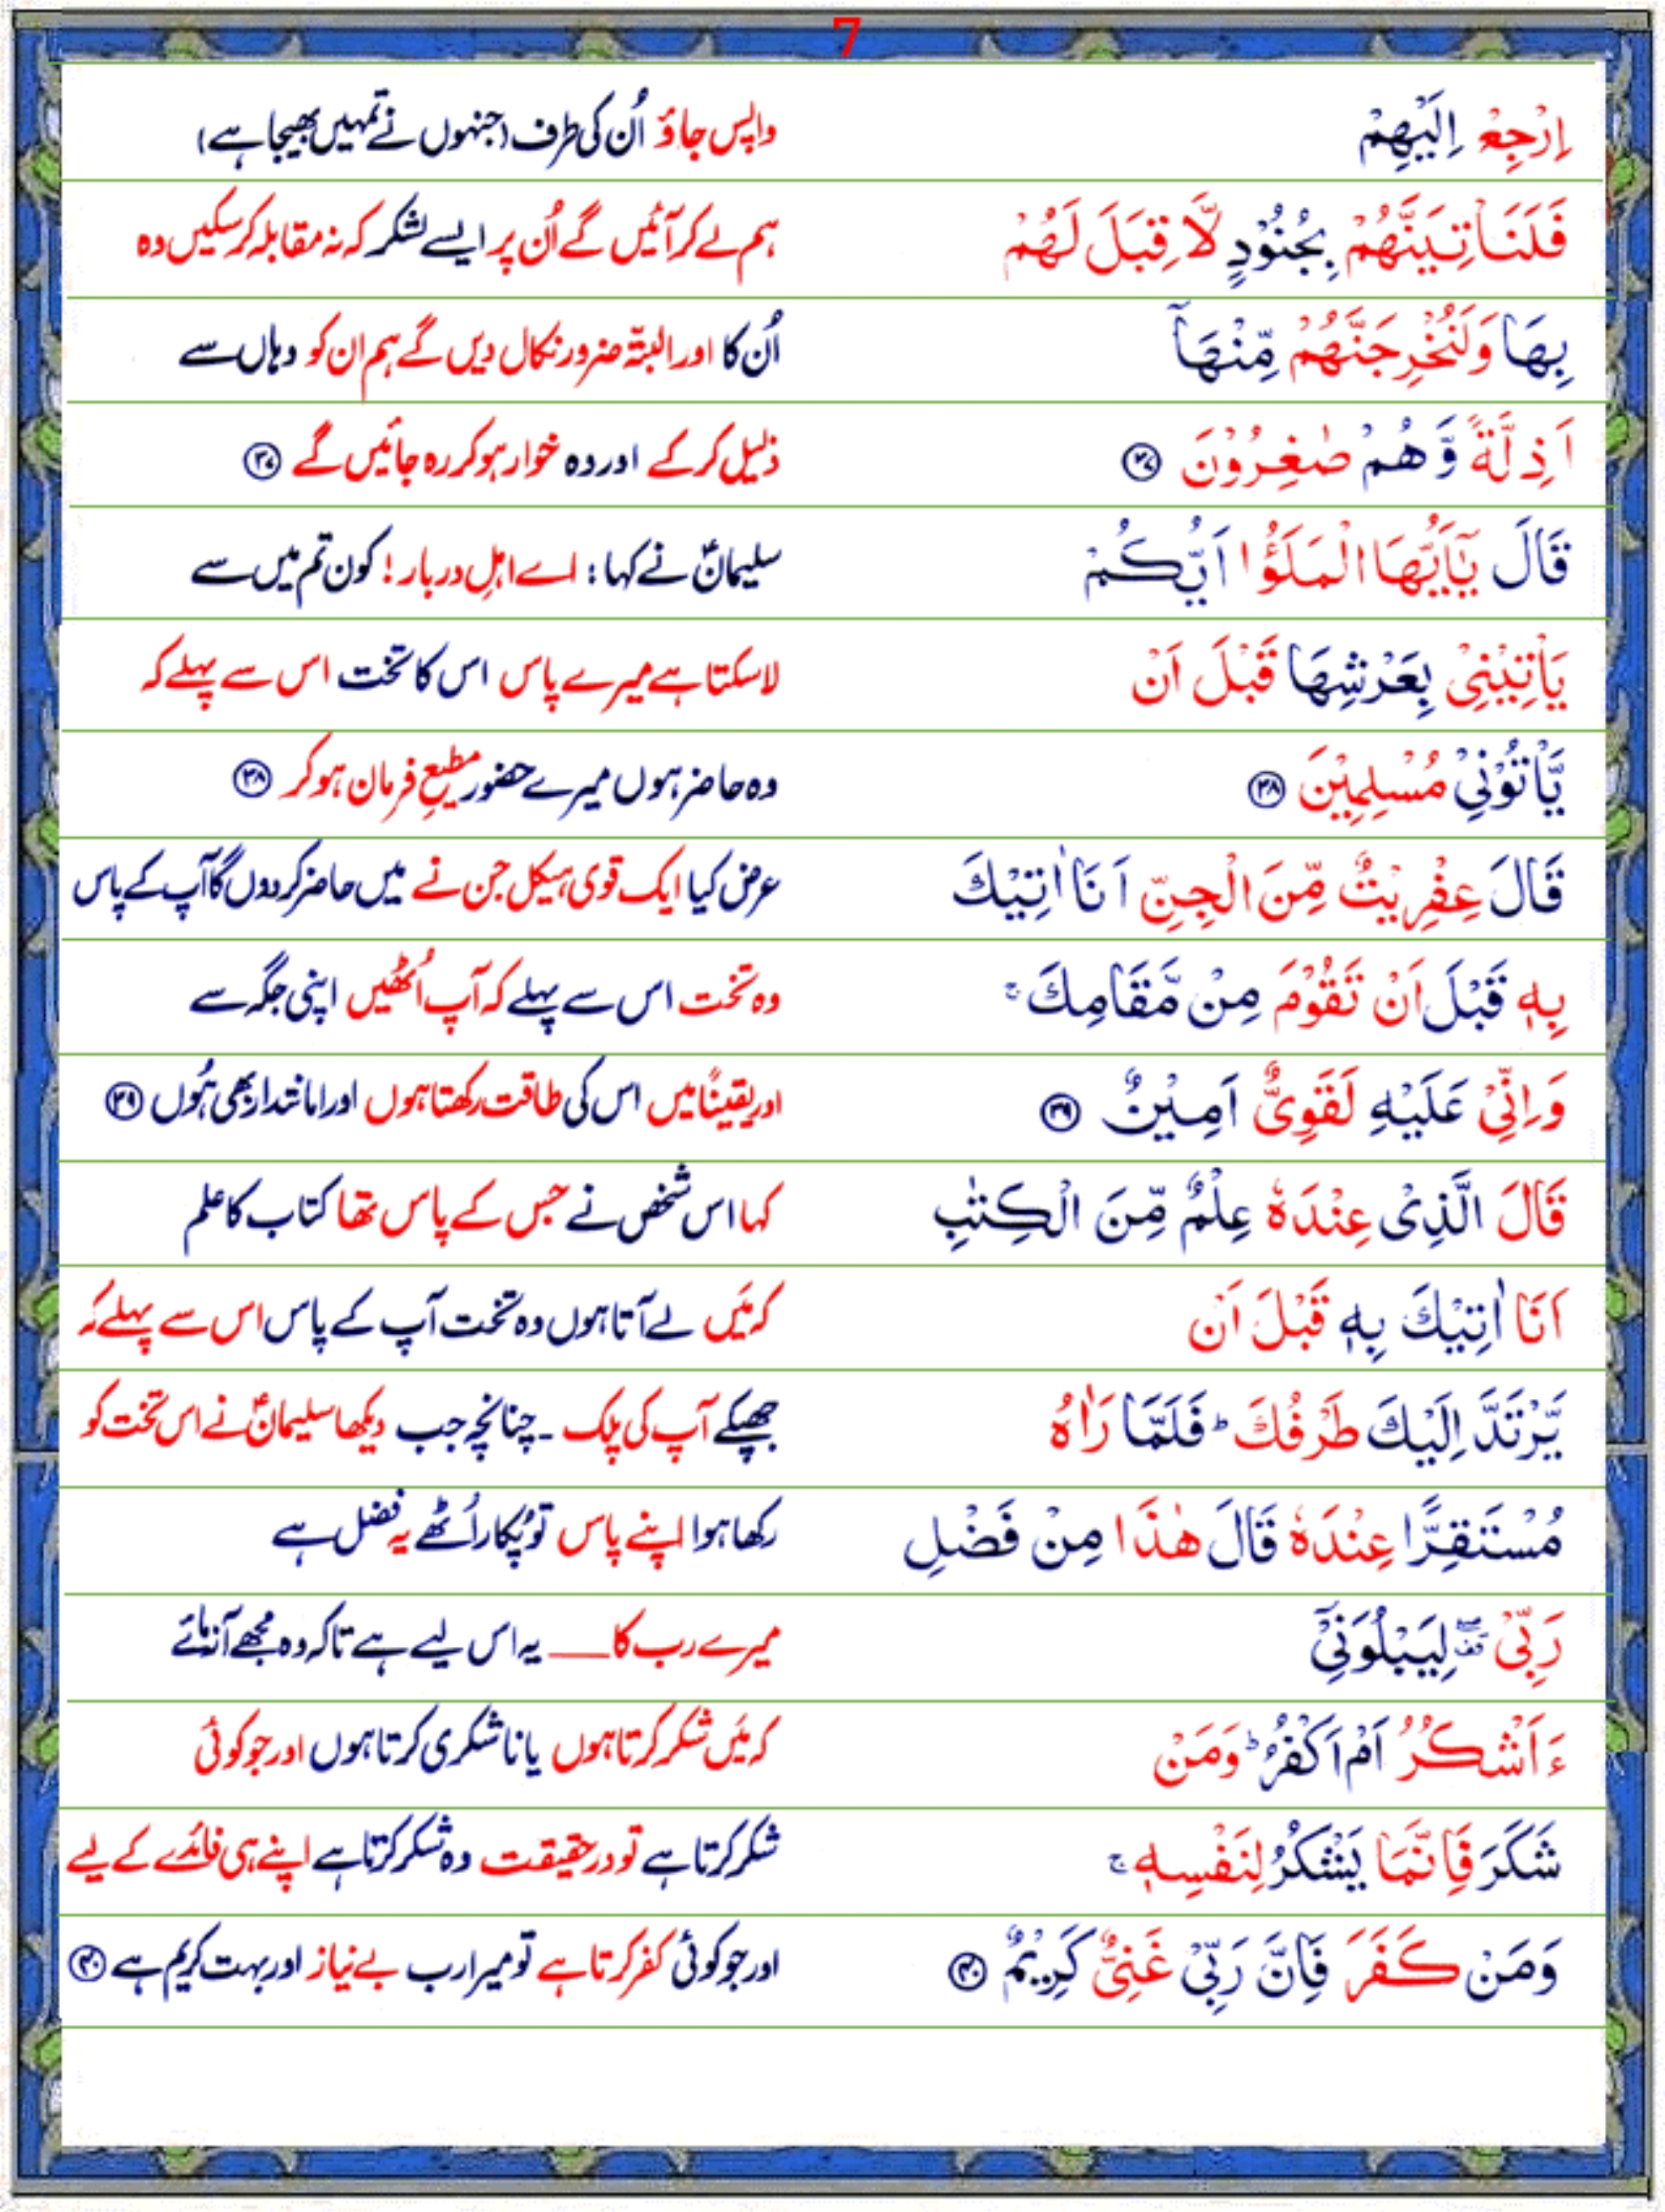 7
اِرْجِعْ اِلَيْهِمْ واپس جاؤ اُن کی طرف (جنہوں نے تمہیں بھیجا ہے)
فَلَنَاْتِيَنَّهُمْ بِجُنُوْدٍ لَّا قِبَلَ لَهُمْ ہم لے کر آئیں گے اُن پر ایسے لشکر کہ نہ مقابلہ کر سکیں وہ
بِهَا وَلَنُخْرِجَنَّهُمْ مِّنْهَاۤ اُن کا اور البتّہ ضرور نکال دیں گے ہم ان کو وہاں سے
اَذِلَّةً وَّهُمْ صٰغِرُوْنَ ۳۷ ذلیل کر کے اور وہ خوار ہو کر رہ جائیں گے ۳۷
قَالَ يٰۤاَيُّهَا الْمَلَؤُا اَيُّكُمْ سلیمانؑ نے کہا: اے اہلِ دربار! کون تم میں سے
يَاْتِيْنِيْ بِعَرْشِهَا قَبْلَ اَنْ لا سکتا ہے میرے پاس اس کا تخت اس سے پہلے کہ
يَّاْتُوْنِيْ مُسْلِمِيْنَ ۳۸ وہ حاضر ہوں میرے حضور مطیعِ فرمان ہو کر ۳۸
قَالَ عِفْرِيْتٌ مِّنَ الْجِنِّ اَنَا اٰتِيْكَ عرض کیا ایک قوی ہیکل جن نے میں حاضر کردوں گا آپ کے پاس
بِهٖ قَبْلَ اَنْ تَقُوْمَ مِنْ مَّقَامِكَ ۚ وہ تخت اس سے پہلے کہ آپ اُٹھیں اپنی جگہ سے
وَاِنِّيْ عَلَيْهِ لَقَوِيٌّ اَمِيْنٌ ۳۹ اور یقیناً میں اس کی طاقت رکھتا ہوں اور امانتدار بھی ہُوں ۳۹
قَالَ الَّذِيْ عِنْدَهٗ عِلْمٌ مِّنَ الْكِتٰبِ کہا اس شخص نے جس کے پاس تھا کتاب کا علم
اَنَا اٰتِيْكَ بِهٖ قَبْلَ اَنْ کہ مَیں لے آتا ہوں وہ تخت آپ کے پاس اس سے پہلے کہ
يَّرْتَدَّ اِلَيْكَ طَرْفُكَ ؕ فَلَمَّا رَاٰهُ جھپکے آپ کی پلک ۔ چنانچہ جب دیکھا سلیمانؑ نے اس تخت کو
مُسْتَقِرًّا عِنْدَهٗ قَالَ هٰذَا مِنْ فَضْلِ رکھا ہوا اپنے پاس تو پُکار اُٹھے یہ فضل ہے
رَبِّيْ ۖ لِيَبْلُوَنِيْۤ میرے رب کا ـــــ یہ اس لیے ہے تاکہ وہ مجھے آزمائے
ءَاَشْكُرُ اَمْ اَكْفُرُ ؕ وَمَنْ کہ مَیں شکر کرتا ہوں یا ناشکری کرتا ہوں اور جو کوئی
شَكَرَ فَاِنَّمَا يَشْكُرُ لِنَفْسِهٖ ۚ شکر کرتا ہے تو درحقیقت وہ شکر کرتا ہے اپنے ہی فائدے کے لیے
وَمَنْ كَفَرَ فَاِنَّ رَبِّيْ غَنِيٌّ كَرِيْمٌ ۴۰ اور جو کوئی کفر کرتا ہے تو میرا رب بے نیاز اور بہت کریم ہے ۴۰